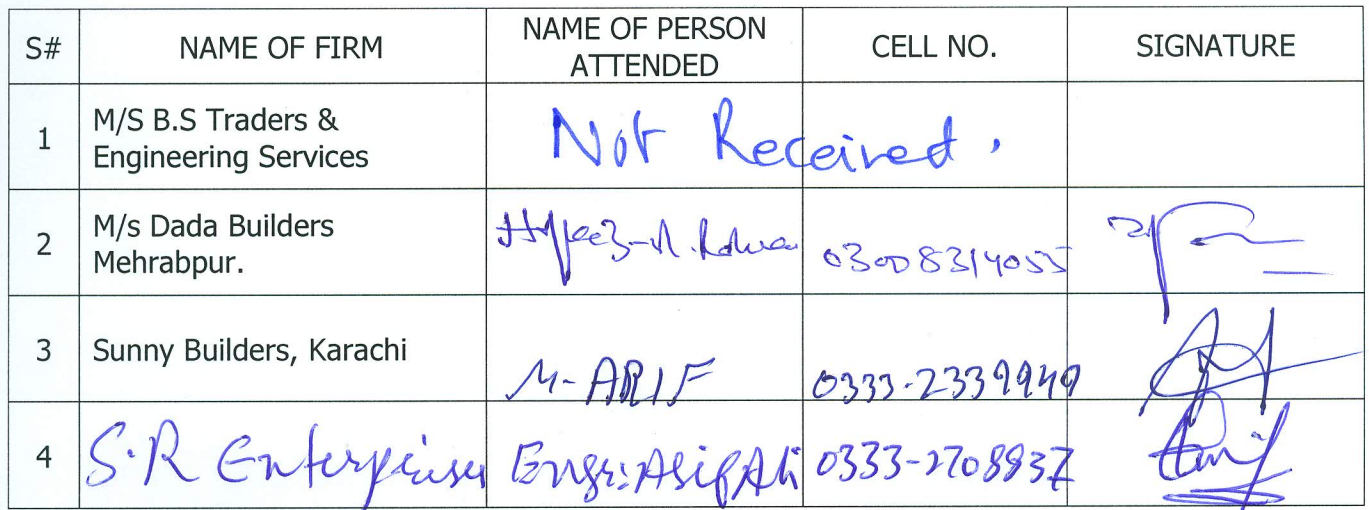 S# NAME OF FIRM NAME OF PERSON ATTENDED CELL NO. SIGNATURE
1 M/S B.S Traders & Engineering Services Not Received.
2 M/s Dada Builders Mehrabpur. 03008314055
3 Sunny Builders, Karachi M-ARIF 0333-2339949
4 S.R Enterprises Engr: Asif Ali 0333-2708937